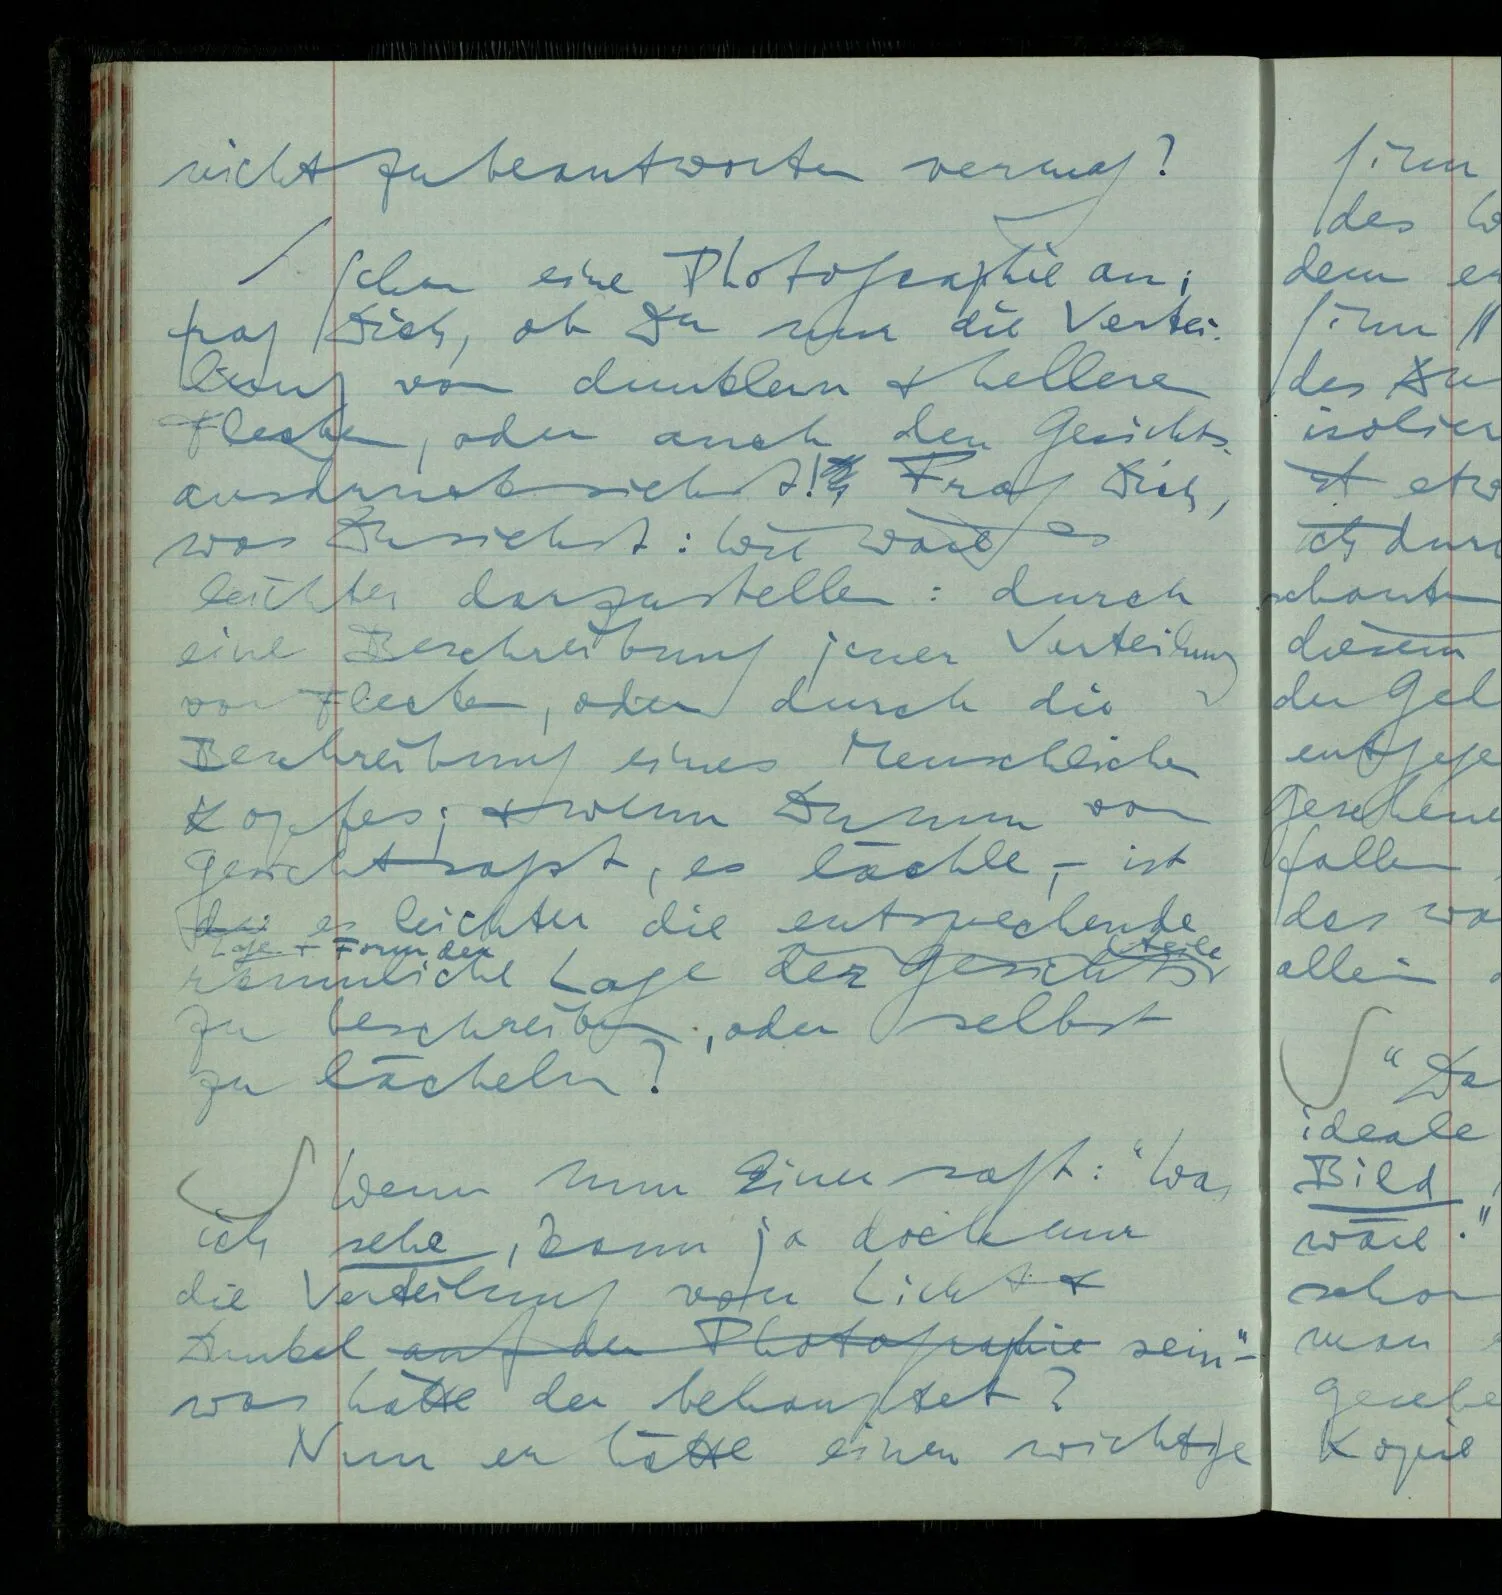 nicht zu beantworten vermag?
/ Schau eine Photographie an;
frag Dich, ob Du nur die Vertei-
lung von dunklern & hellern
Flecken, oder auch den Gesichts-
ausdruck siehst! Frag Dich,
was Du siehst: wie wäre es
leichter darzustellen: durch
eine Beschreibung jener Verteilung
von Flecken, oder durch die
Beschreibung eines Menschlichen
Kopfes; & wenn Du nun vom
Gesicht sagst, es lächle, – ist
es leichter die entsprechende
Lage & Form der
räumliche Lage der Gesichtsteile
zu beschreiben, oder selbst
zu lächeln?
Wenn nun Einer sagt: "Was
ich sehe, kann ja doch nur
die Verteilung von Licht &
Dunkel auf der Photographie sein" –
was hätte der behauptet?
Nun er hätte einen wichtige
des
dem
des
ist
ich
diesem
der
fallen
das
allein
"Da
ideale
Bild
wäre."
man